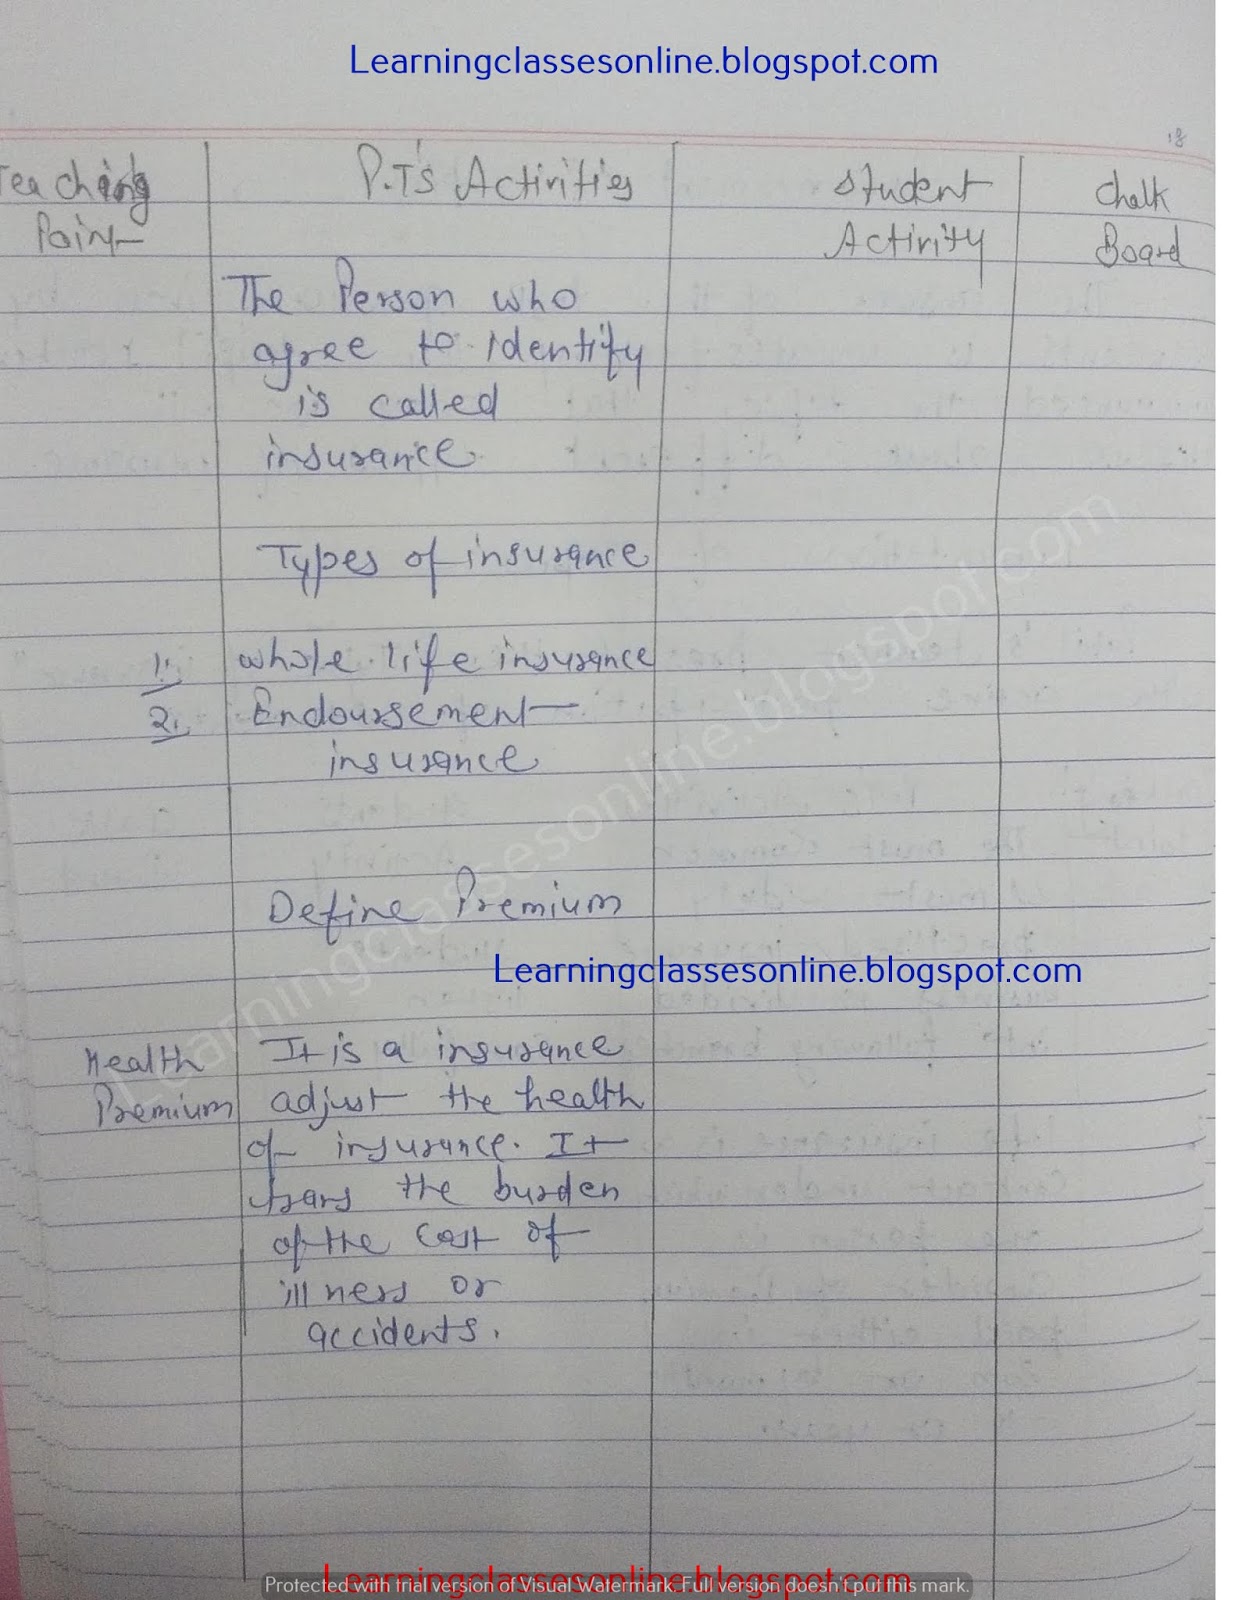 Learningclassesonline.blogspot.com
18
Teaching Point
P.T's Activities
Student Activity
Chalk Board
The Person who
agree to identify
is called
insurance
Types of insurance
1. whole life insurance
2. Endoursement
insurance
Define Premium
Learningclassesonline.blogspot.com
Health It is a insurance
Premium adjust the health
of insurance. It
the burden
of the cost of
illness or
accidents.
Learningclassesonline.blogspot.com
Learningclassesonline.blogspot.com
Protected with trial version of Visual Watermark. Full version doesn't put this mark.